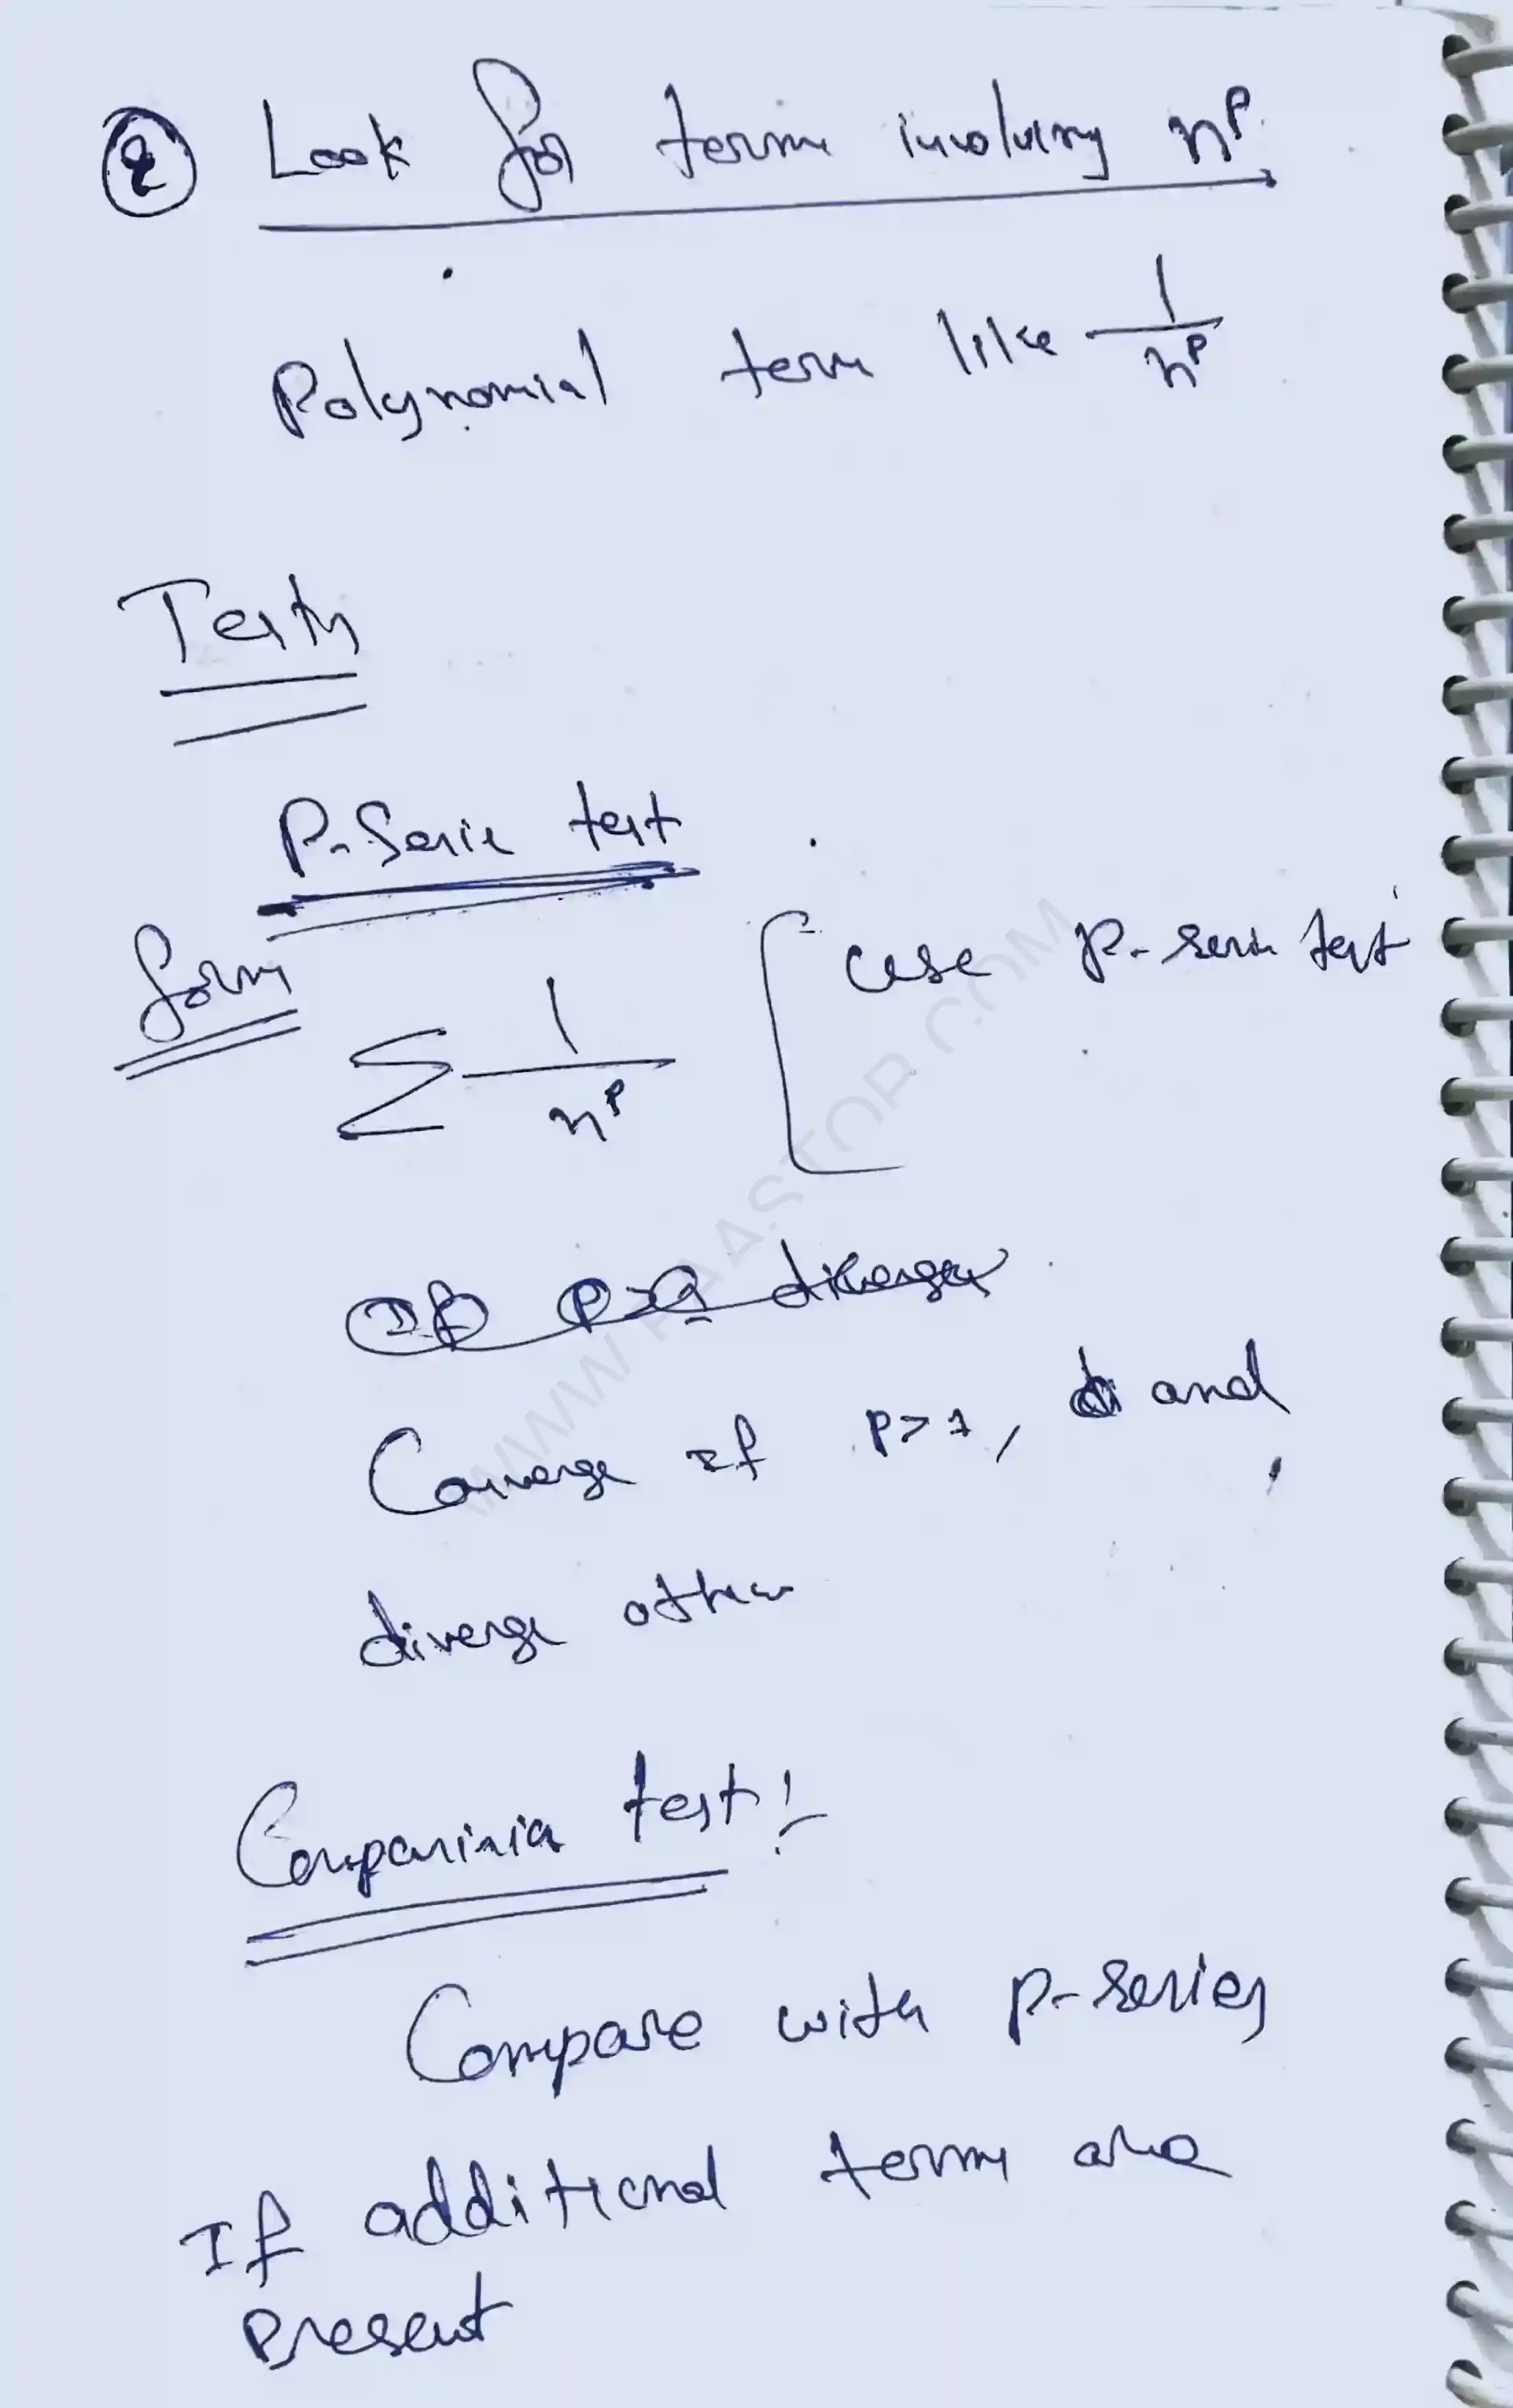 ② Look for term involving n^p
Polynomial term like 1/n^p
Tests
P-Serie test
form
∑ 1/n^p
case p-serie test
If p>1 diverger
Converge if p>1, and
diverge other
test:
Compare with p-series
If additional terms are
present
WWW.FAASTOP.COM